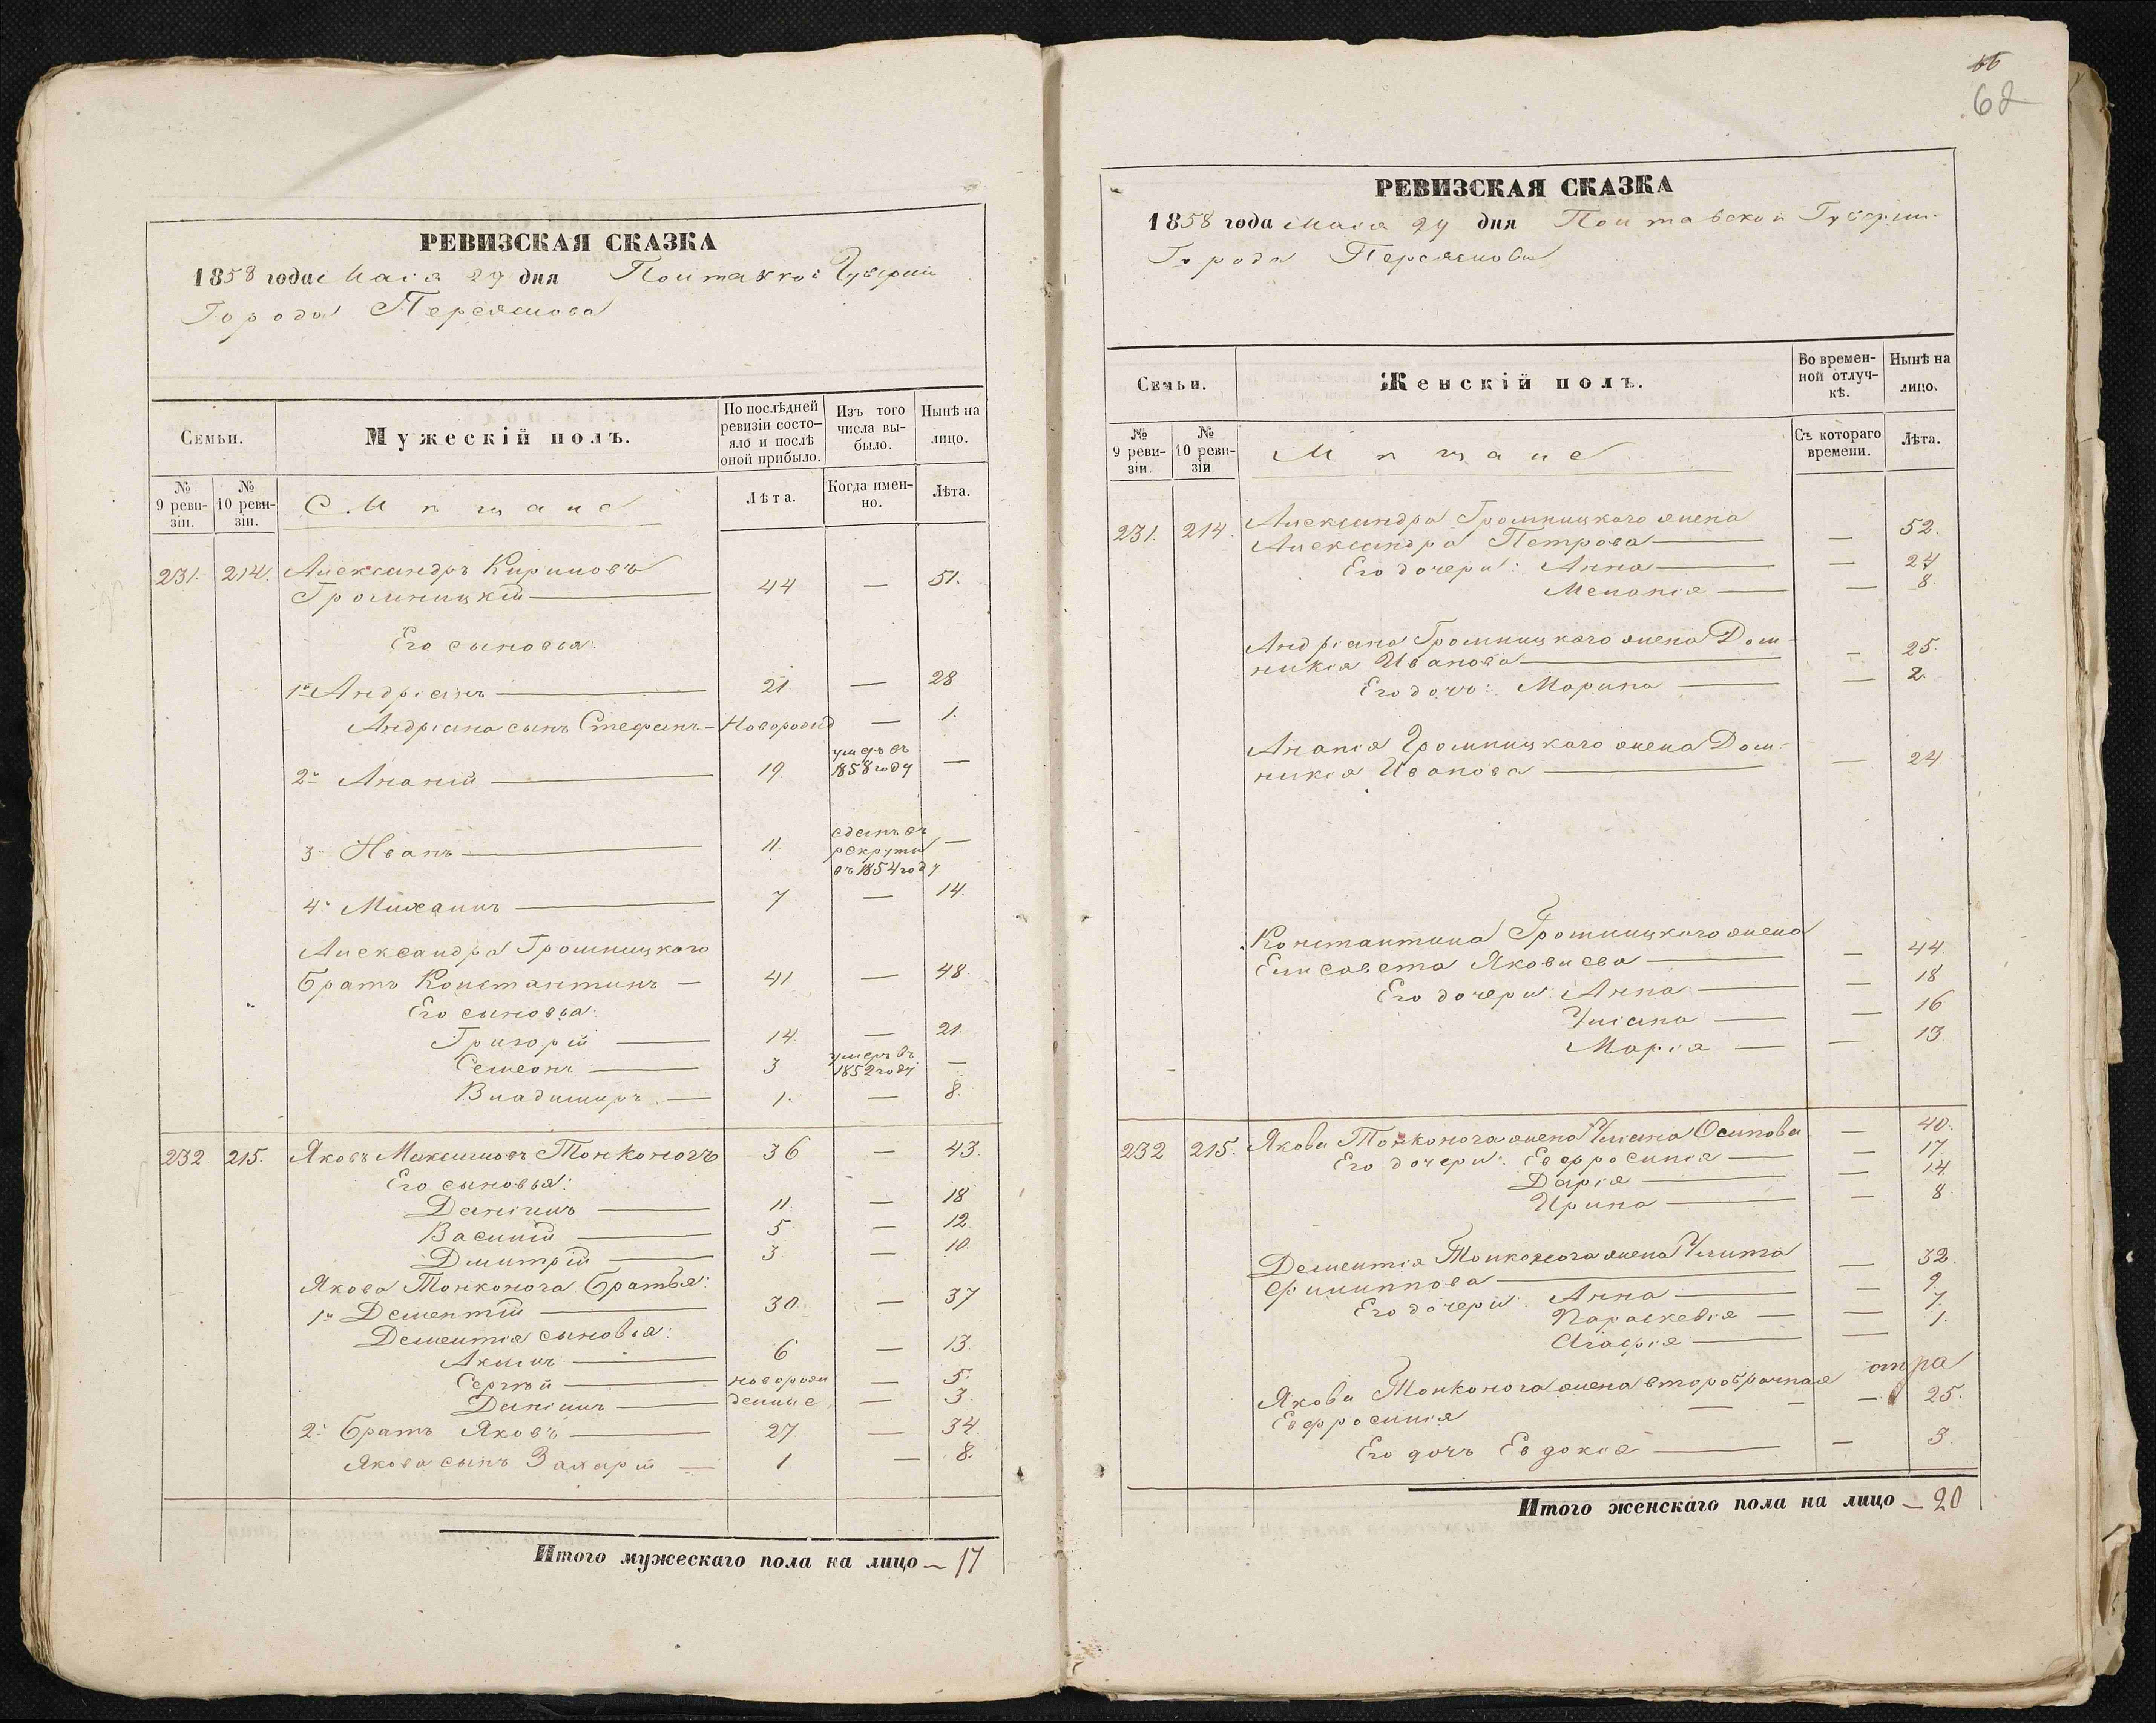 РЕВИЗСКАЯ СКАЗКА
1858 года Маія 29 дня Полтавской Губерніи
Города Переяслова
Семьи.
Мужескій полъ.
По послѣдней ревизіи состояло и послѣ оной прибыло.
Изъ того числа выбыло.
Нынѣ на лицо.
№ 9 ревизіи.
№ 10 ревизіи.
Мѣщане
Лѣта.
Когда именно.
Лѣта.
231. 214. Александръ Кириловъ
Громницкій — 44 — 51.
Его сыновья:
1й Андріанъ — 21 — 28
Андріана сынъ Стефанъ — Новорожд — 1.
2й Ананій — 19 умеръ въ 1858 году —
3й Иванъ — 11. сданъ въ рекруты въ 1854 году —
4й Михаилъ — 7 — 14.
Александра Громницкого
братъ Константинъ — 41 — 48.
Его сыновья:
Григорій — 14 — 21.
Семеонъ — 3 умеръ въ 1852 году —
Владимиръ — 1. — 8.
232 215. Яковъ Максимовъ Тонконогъ 36 — 43.
Его сыновья:
Даніилъ — 11. — 18
Василій — 5 — 12.
Дмитрій — 3 — 10.
Якова Тонконога братья:
1й Дементій — 30. — 37
Дементія сыновья:
Акимъ — 6 — 13.
Сергѣй — новорож — 5.
Даніилъ — денные — 3.
2й братъ Яковъ — 27. — 34.
Якова сынъ Захарій — 1 — 8.
Итого мужескаго пола на лицо — 17
62
РЕВИЗСКАЯ СКАЗКА
1858 года Маія 29 дня Полтавской Губерніи
Города Переяслова
Семьи.
Женскій полъ.
Во временной отлучкѣ.
Нынѣ на лицо.
№ 9 ревизіи.
№ 10 ревизіи.
Мѣщане
Съ котораго времени.
Лѣта.
231. 214. Александра Громницкаго жена
Александра Петрова — — 52.
Его дочери: Анна — — 24
Меланія — — 8.
Андріана Громницкаго жена Дом-
никія Иванова — — 25.
Его дочь: Марина — — 2.
Ананія Громницкаго жена Дом-
никія Иванова — — 24
Константина Громницкаго жена
Елисавета Яковлева — — 44.
Его дочери: Анна — — 18
Уліана — — 16
Марія — — 13
232 215. Якова Тонконога жена Уліана Осипова — 40.
Его дочери: Евфросинія — — 17.
Дарія — — 14.
Ирина — — 8
Дементія Тонконога жена Улита
Филиппова — — 32.
Его дочери: Анна — — 9.
Параскевія — — 7.
Агафія — — 1.
Якова Тонконога жена второбрачная
Евфросинія — — — 25.
Его дочь Евдокія — — 3.
Итого женскаго пола на лицо — 20